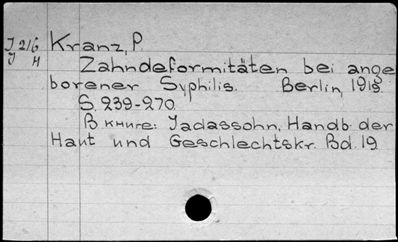 J 216 Kranz, P.
J H Zahndeformitäten bei ange
borener Syphilis. Berlin, 1919.
S. 239-270.
В книге: Jadassohn, Handb. der
Haut und Geschlechtskr. Bd. 19